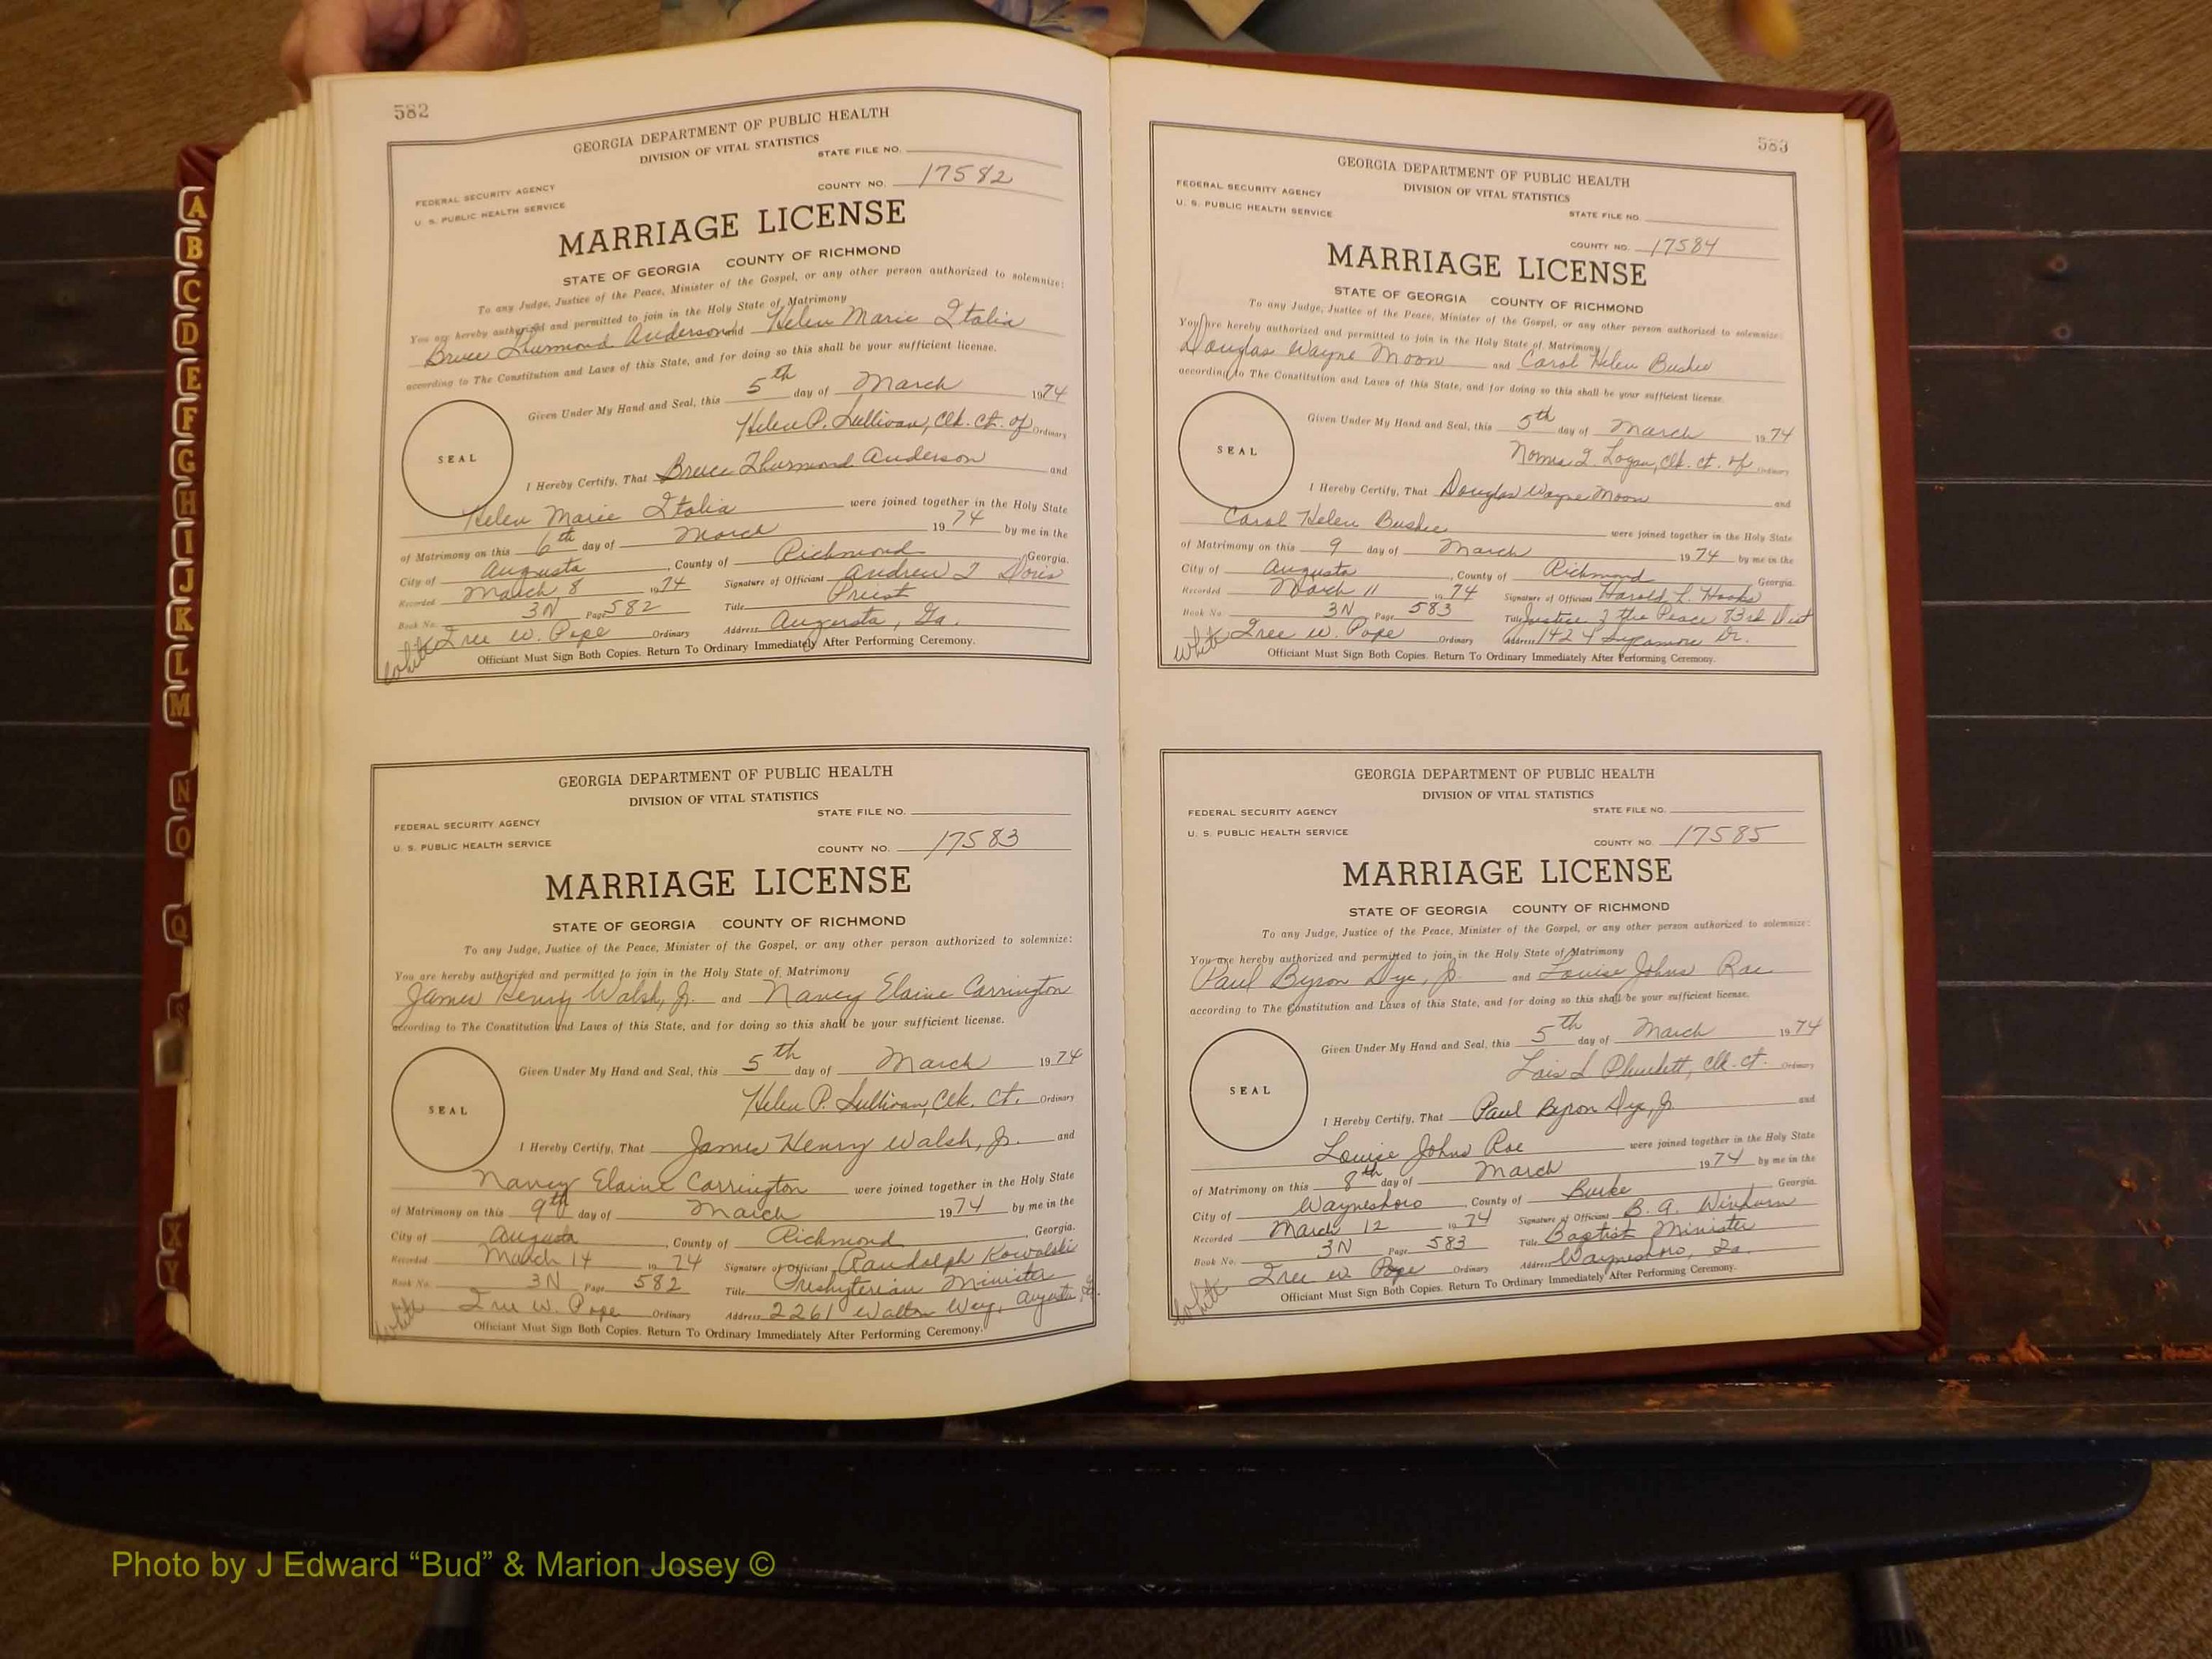 582
GEORGIA DEPARTMENT OF PUBLIC HEALTH
DIVISION OF VITAL STATISTICS
STATE FILE NO.
FEDERAL SECURITY AGENCY
U. S. PUBLIC HEALTH SERVICE
COUNTY NO. 17582
MARRIAGE LICENSE
STATE OF GEORGIA COUNTY OF RICHMOND
To any Judge, Justice of the Peace, Minister of the Gospel, or any other person authorized to solemnize:
You are hereby authorized and permitted to join in the Holy State of Matrimony
Bruce Thurmond Anderson and Helen Marie Italia
according to The Constitution and Laws of this State, and for doing so this shall be your sufficient license.
Given Under My Hand and Seal, this 5th day of March 1974
Helen P. Sullivan, Clk. Ct. of Ordinary
SEAL
I Hereby Certify, That Bruce Thurmond Anderson and
Helen Marie Italia were joined together in the Holy State
of Matrimony on this 6th day of March 1974 by me in the
City of Augusta, County of Richmond, Georgia.
Recorded March 8 1974 Signature of Officiant Andrew J
Book No. 3N Page 582 Title Priest
Ordinary Address Augusta, Ga.
White W. Pope
Officiant Must Sign Both Copies. Return To Ordinary Immediately After Performing Ceremony.
GEORGIA DEPARTMENT OF PUBLIC HEALTH
DIVISION OF VITAL STATISTICS
STATE FILE NO.
FEDERAL SECURITY AGENCY
U. S. PUBLIC HEALTH SERVICE
COUNTY NO. 17583
MARRIAGE LICENSE
STATE OF GEORGIA COUNTY OF RICHMOND
To any Judge, Justice of the Peace, Minister of the Gospel, or any other person authorized to solemnize:
You are hereby authorized and permitted to join in the Holy State of Matrimony
James Henry Walsh, Jr. and Nancy Elaine Carrington
according to The Constitution and Laws of this State, and for doing so this shall be your sufficient license.
Given Under My Hand and Seal, this 5th day of March 1974
Helen P. Sullivan, Clk. Ct. Ordinary
SEAL
I Hereby Certify, That James Henry Walsh, Jr. and
Nancy Elaine Carrington were joined together in the Holy State
of Matrimony on this 9th day of March 1974 by me in the
City of Augusta, County of Richmond, Georgia.
Recorded March 14 1974 Signature of Officiant Randolph Kowalski
Book No. 3N Page 582 Title Presbyterian Minister
White W. Pope Ordinary Address 2261 Walton Way, Augusta, Ga.
Officiant Must Sign Both Copies. Return To Ordinary Immediately After Performing Ceremony.
583
GEORGIA DEPARTMENT OF PUBLIC HEALTH
DIVISION OF VITAL STATISTICS
FEDERAL SECURITY AGENCY
U. S. PUBLIC HEALTH SERVICE
STATE FILE NO.
COUNTY NO. 17584
MARRIAGE LICENSE
STATE OF GEORGIA COUNTY OF RICHMOND
To any Judge, Justice of the Peace, Minister of the Gospel, or any other person authorized to solemnize:
You are hereby authorized and permitted to join in the Holy State of Matrimony
Douglas Wayne Moon and Carol Helen Bushee
according to The Constitution and Laws of this State, and for doing so this shall be your sufficient license.
Given Under My Hand and Seal, this 5th day of March 1974
Logan, Clk. Ct. of Ordinary
SEAL
I Hereby Certify, That Douglas Wayne Moon and
Carol Helen Bushee were joined together in the Holy State
of Matrimony on this 9 day of March 1974 by me in the
City of Augusta, County of Richmond Georgia.
Recorded March 11 1974 Signature of Officiant Harold L. Hooks
Book No. 3N Page 583 Title Justice of the Peace 83rd Dist
White W. Pope Ordinary Address Sycamore Dr.
Officiant Must Sign Both Copies. Return To Ordinary Immediately After Performing Ceremony.
GEORGIA DEPARTMENT OF PUBLIC HEALTH
DIVISION OF VITAL STATISTICS
FEDERAL SECURITY AGENCY
STATE FILE NO.
U. S. PUBLIC HEALTH SERVICE
COUNTY NO. 17585
MARRIAGE LICENSE
STATE OF GEORGIA COUNTY OF RICHMOND
To any Judge, Justice of the Peace, Minister of the Gospel, or any other person authorized to solemnize:
You are hereby authorized and permitted to join in the Holy State of Matrimony
Paul Byron Dye, Jr. and Louise Johns Rae
according to The Constitution and Laws of this State, and for doing so this shall be your sufficient license.
Given Under My Hand and Seal, this 5th day of March 1974
Lois L. Plunkett, Clk. Ct. Ordinary
SEAL
I Hereby Certify, That Paul Byron Dye, Jr. and
Louise Johns Rae were joined together in the Holy State
of Matrimony on this 8th day of March 1974 by me in the
City of Waynesboro, County of Burke Georgia.
Recorded March 12 1974 Signature of Officiant B. A.
Book No. 3N Page 583 Title Baptist Minister
White W. Pope Ordinary Address Waynesboro, Ga.
Officiant Must Sign Both Copies. Return To Ordinary Immediately After Performing Ceremony.
A
B
C
D
E
F
G
H
I
J
K
L
M
N
O
Q
S
X
Y
Photo by J Edward “Bud” & Marion Josey ©